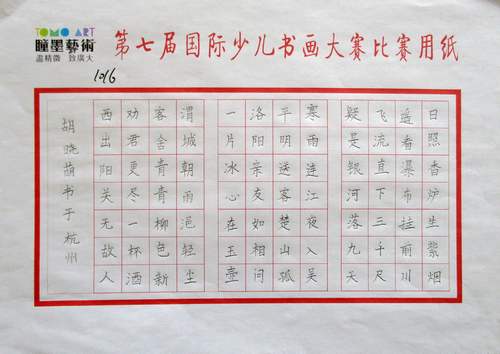 TOMO ART
瞳墨藝術
盡精微 致廣大
第七届国际少儿书画大赛比赛用纸
1016
日照香炉生紫烟
遥看瀑布挂前川
飞流直下三千尺
疑是银河落九天
寒雨连江夜入吴
平明送客楚山孤
洛阳亲友如相问
一片冰心在玉壶
渭城朝雨浥轻尘
客舍青青柳色新
劝君更尽一杯酒
西出阳关无故人
胡晓萌书于杭州